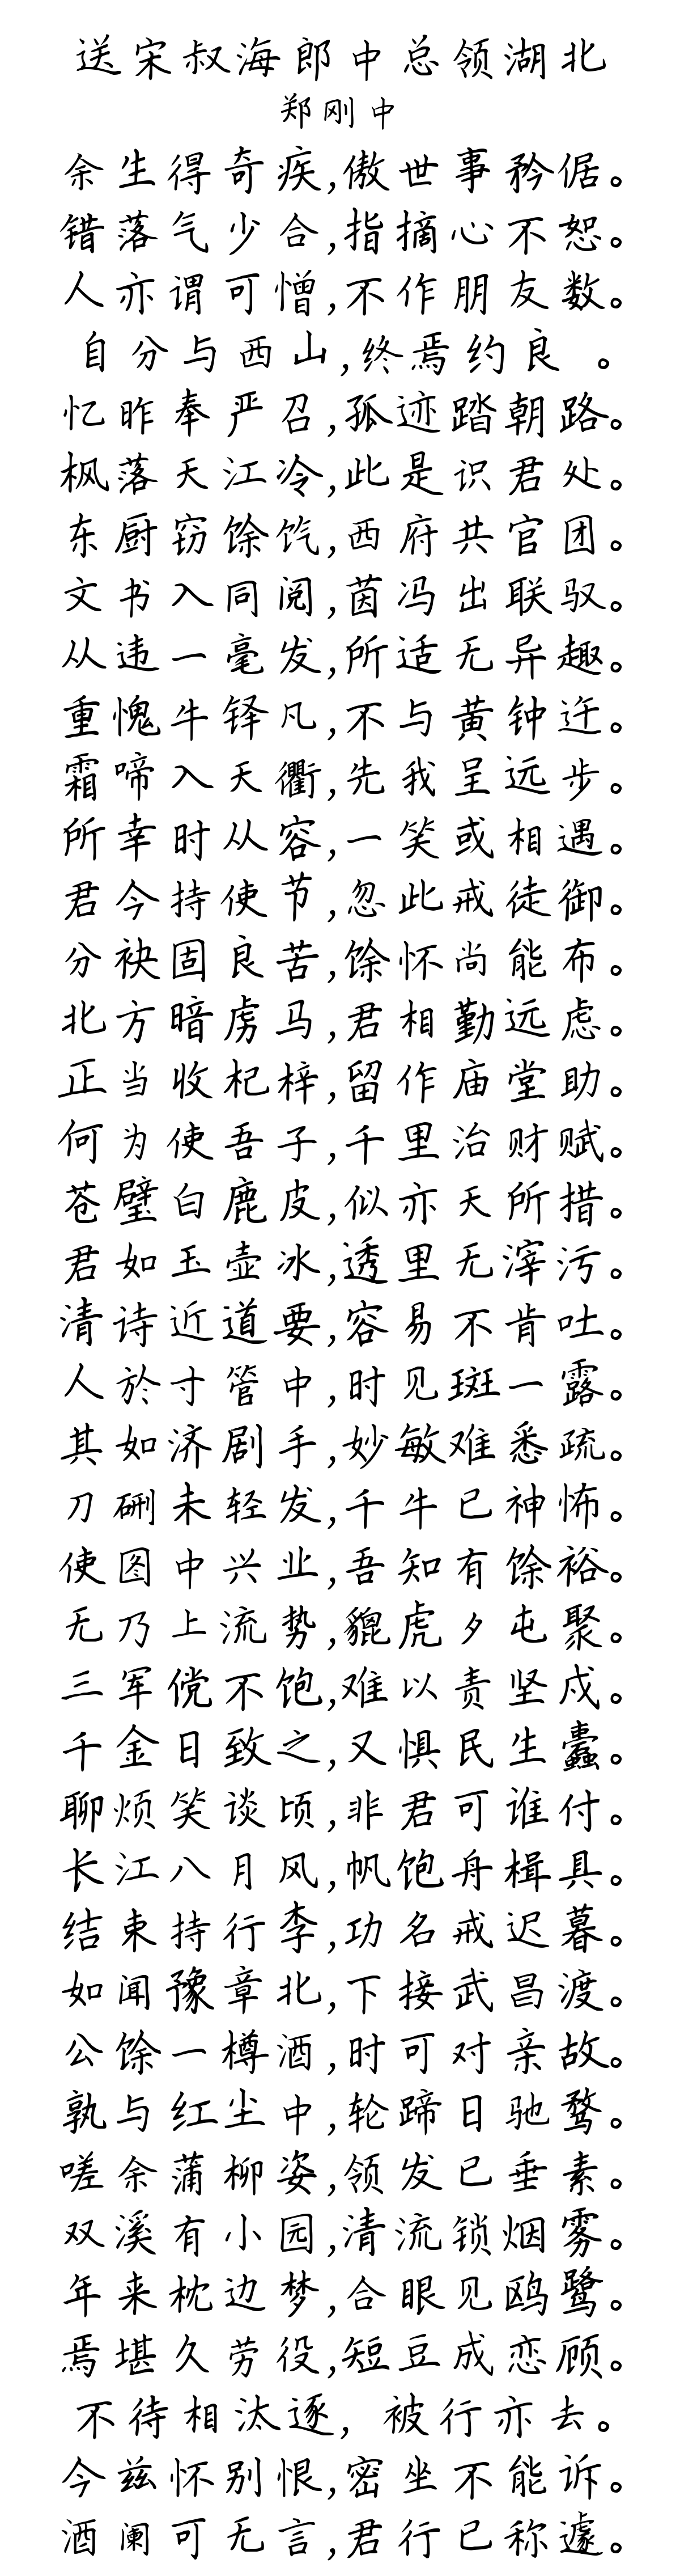 送宋叔海郎中总领湖北
郑刚中
余生得奇疾,傲世事矜倨。
错落气少合,指摘心不恕。
人亦谓可憎,不作朋友数。
自分与西山,终焉约良 。
忆昨奉严召,孤迹踏朝路。
枫落天江冷,此是识君处。
东厨窃馀饩,西府共官团。
文书入同阅,茵冯出联驭。
从违一毫发,所适无异趣。
重愧牛铎凡,不与黄钟迕。
霜啼入天衢,先我呈远步。
所幸时从容,一笑或相遇。
君今持使节,忽此戒徒御。
分袂固良苦,馀怀尚能布。
北方暗虏马,君相勤远虑。
正当收杞梓,留作庙堂助。
何为使吾子,千里治财赋。
苍璧白鹿皮,似亦天所措。
君如玉壶冰,透里无滓污。
清诗近道要,容易不肯吐。
人於寸管中,时见斑一露。
其如济剧手,妙敏难悉疏。
刀硎未轻发,千牛已神怖。
使图中兴业,吾知有馀裕。
无乃上流势,貔虎夕屯聚。
三军傥不饱,难以责坚戍。
千金日致之,又惧民生蠹。
聊烦笑谈顷,非君可谁付。
长江八月风,帆饱舟楫具。
结束持行李,功名戒迟暮。
如闻豫章北,下接武昌渡。
公馀一樽酒,时可对亲故。
孰与红尘中,轮蹄日驰鹜。
嗟余蒲柳姿,领发已垂素。
双溪有小园,清流锁烟雾。
年来枕边梦,合眼见鸥鹭。
焉堪久劳役,短豆成恋顾。
不待相汰逐,被行亦去。
今兹怀别恨,密坐不能诉。
酒阑可无言,君行已称遽。